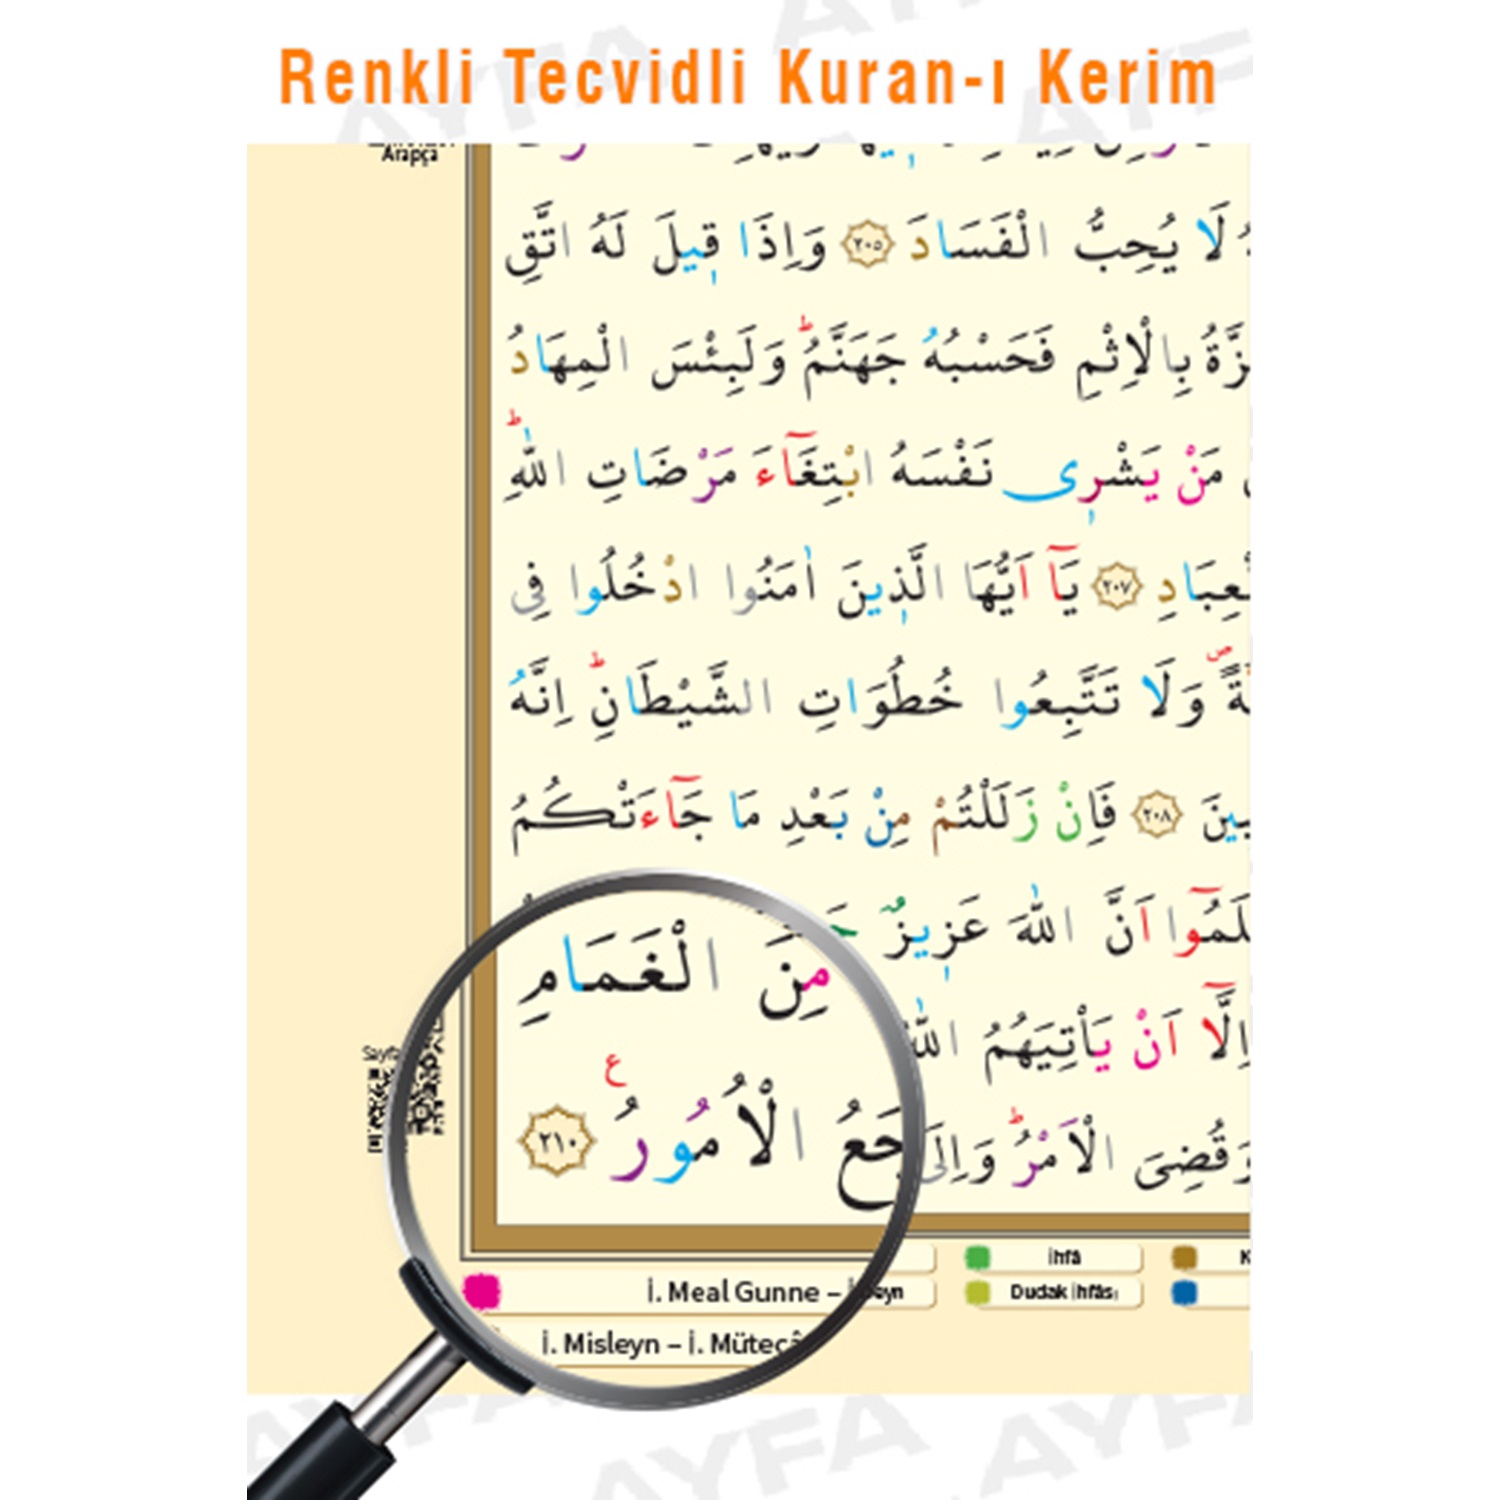 Renkli Tecvidli Kuran-ı Kerim
Arapça
لَا يُحِبُّ الْفَسَادَ ﴿٢٠٥﴾ وَاِذَا قٖيلَ لَهُ اتَّقِ
بِالْاِثْمِ فَحَسْبُهُ جَهَنَّمُؕ وَلَبِئْسَ الْمِهَادُ
مَنْ يَشْرٖى نَفْسَهُ ابْتِغَٓاءَ مَرْضَاتِ اللّٰهِؕ
يَٓا اَيُّهَا الَّذٖينَ اٰمَنُوا ادْخُلُوا فِى ﴿٢٠٧﴾
وَلَا تَتَّبِعُوا خُطُوَاتِ الشَّيْطَانِؕ اِنَّهُ
﴿٢٠٨﴾ فَاِنْ زَلَلْتُمْ مِنْ بَعْدِ مَا جَٓاءَتْكُمُ
اَنَّ اللّٰهَ عَزٖيزٌ
مِنَ الْغَمَامِ
اِلَّٓا اَنْ يَاْتِيَهُمُ اللّٰهُ
وَقُضِىَ الْاَمْرُؕ وَاِلَى
الْاُمُورُ ﴿٢١٠﴾ ع
Sayfa
İhfâ
İ. Meal Gunne – İ.
Dudak İhfâsı
İ. Misleyn – İ.
AYFA